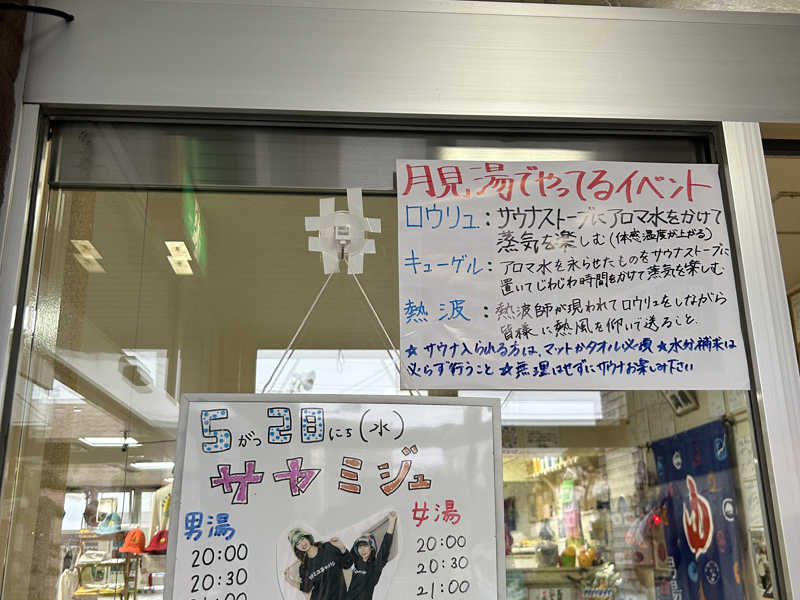 月見湯でやってるイベント
ロウリュ：サウナストーブにアロマ水をかけて
蒸気を楽しむ(体感温度が上がる)
キューゲル：アロマ水を氷らせたものをサウナストーブに
置いてじわじわ時間をかけて蒸気を楽しむ
熱波：熱波師が現われてロウリュをしながら
皆様に熱風を仰いで送ること.
★サウナ入られる方は、マットかタオル必須★水分補来は
必らず行うこと★無理はせずにサウナお楽しみ下さい
5がつ28にち(水)
サヤミジュ
男湯
20:00
20:30
21:00
女湯
20:00
20:30
21:00
ゆ